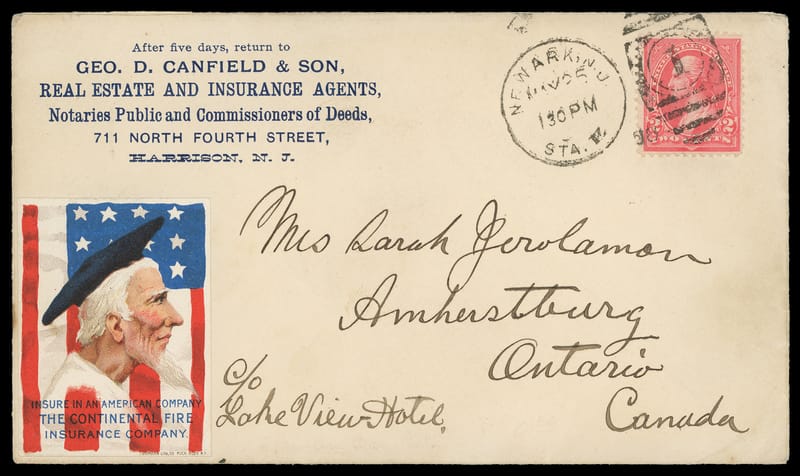 After five days, return to
GEO. D. CANFIELD & SON,
REAL ESTATE AND INSURANCE AGENTS,
Notaries Public and Commissioners of Deeds,
711 NORTH FOURTH STREET,
HARRISON, N. J.
NEWARK, N.J.
130PM
STA.
2 2
Mrs Sarah Jerolamon
Amherstburg
Ontario
Canada
c/o
Lake View Hotel,
INSURE IN AN AMERICAN COMPANY
THE CONTINENTAL FIRE
INSURANCE COMPANY.